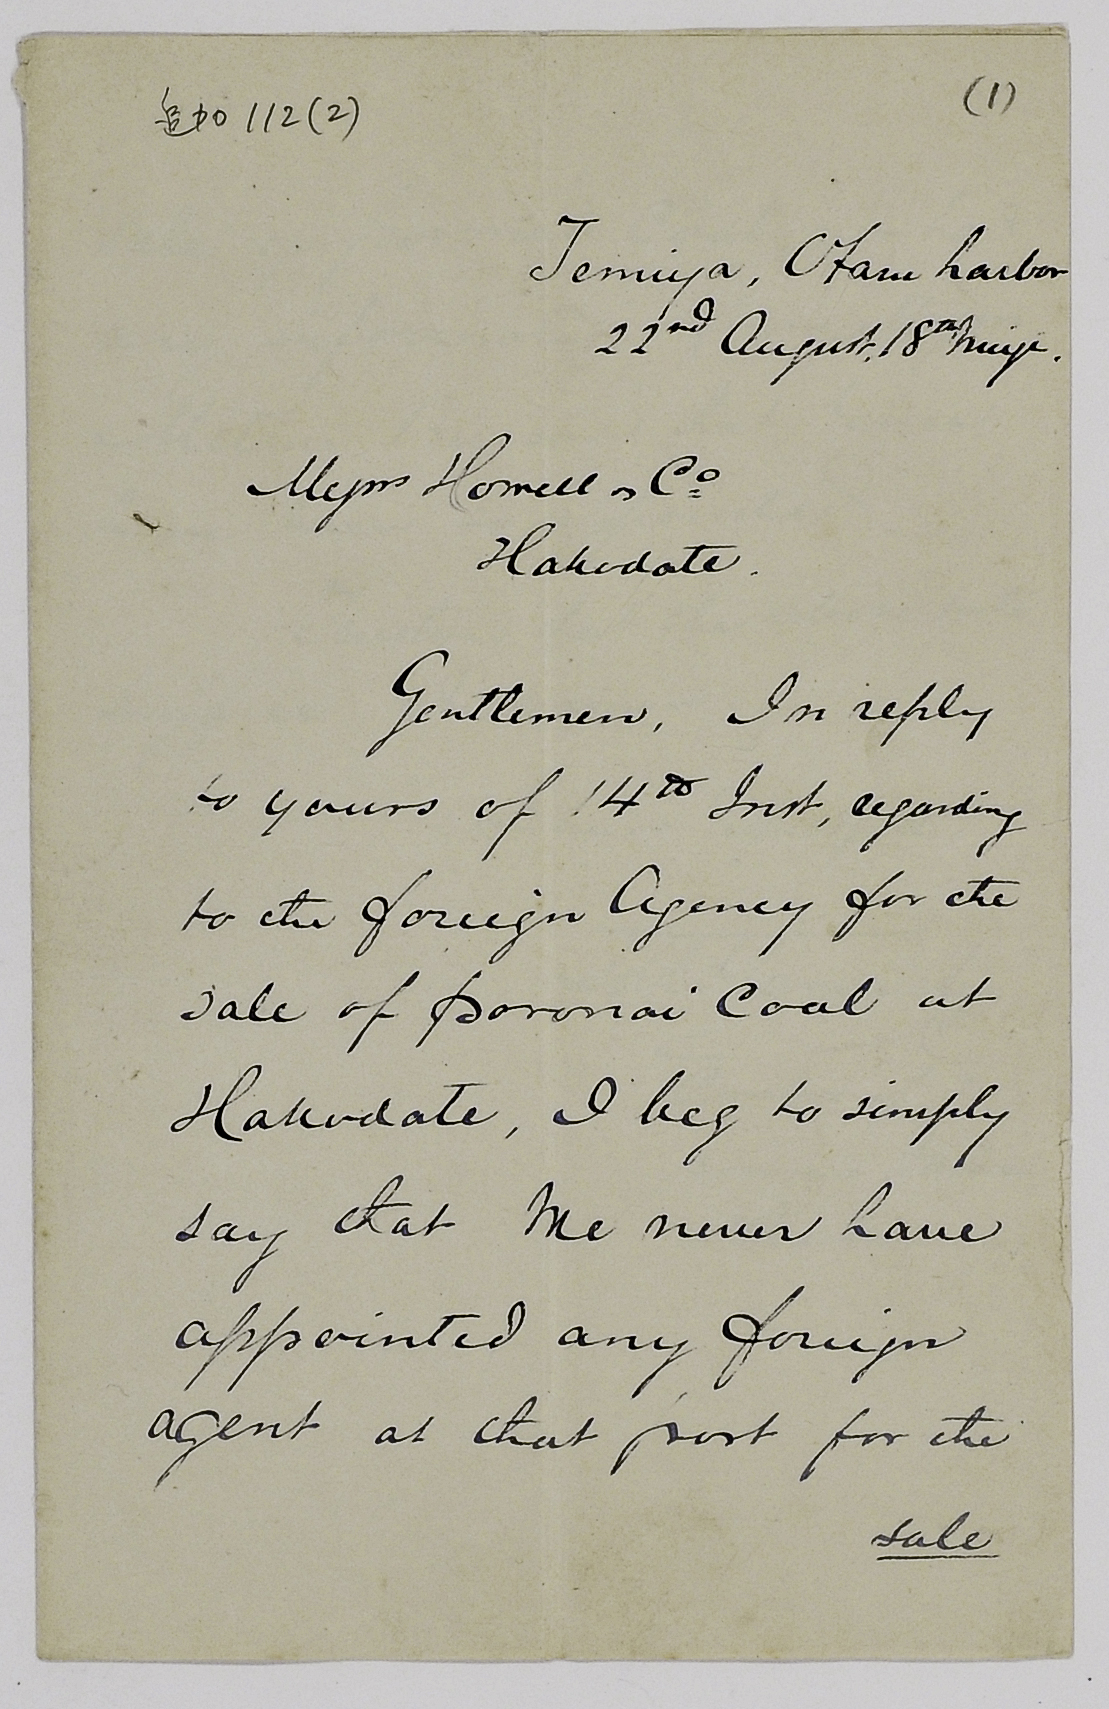 追加 112(2)
(1)
Temiya, Otaru harbor
22nd August, 18th Meiji.
Messrs Howell & Co
Hakodate.
Gentlemen, In reply
to yours of 14th Inst, regarding
to the foreign Agency for the
sale of Poronai Coal at
Hakodate, I beg to simply
say that We never have
appointed any foreign
agent at that port for the
sale